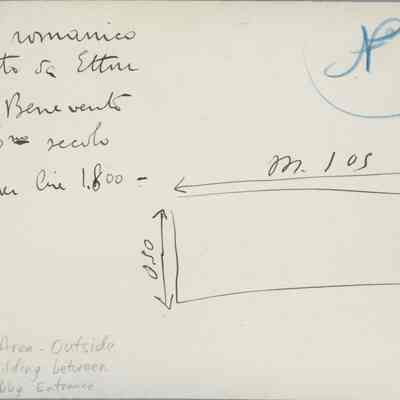 romanico
to da Ettore
Benevento
secolo
per lire 1.800 =
N
m. 1 05
0.50
Area - Outside
ilding between
bby Entrance